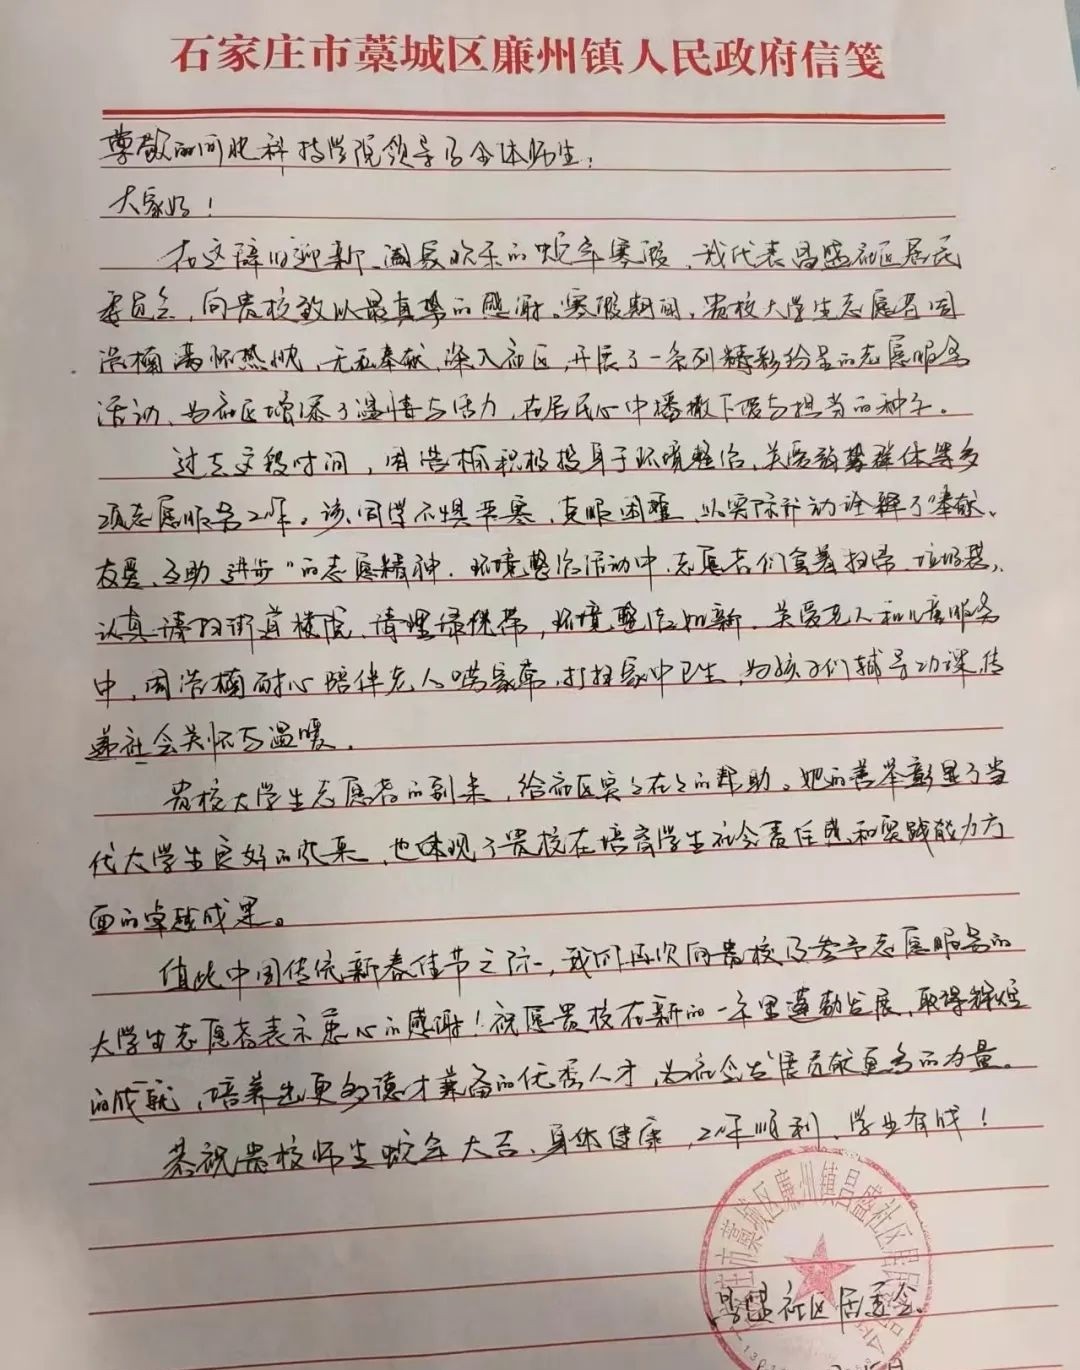 石家庄市藁城区廉州镇人民政府信笺
尊敬的河北科技学院领导及全体师生：
大家好！
在这辞旧迎新、阖家欢乐的蛇年寒假，我代表昌盛社区居民
委员会，向贵校致以最真挚的感谢。寒假期间，贵校大学生志愿者周
浩楠满怀热忱、无私奉献、深入社区，开展了一系列精彩纷呈的志愿服务
活动、为社区增添了温情与活力，在居民心中播撒下爱与担当的种子。
过去这段时间，周浩楠积极投身于环境整治、关爱弱势群体等多
项志愿服务工作。该同学不惧严寒、克服困难、以实际行动诠释了“奉献、
友爱、互助、进步”的志愿精神．环境整治活动中，志愿者们拿着扫帚、垃圾袋，
认真清扫街道楼院、清理绿化带，环境整洁如新．关爱老人和儿童服务
中，周浩楠耐心陪伴老人唠家常、打扫家中卫生，为孩子们辅导功课传
递社会关怀与温暖．
贵校大学生志愿者的到来，给社区实实在在的帮助。她的善举彰显了当
代大学生良好的风采，也体现了贵校在培育学生社会责任感和实践能力方
面的卓越成果。
值此中国传统新春佳节之际，我们再次向贵校及参予志愿服务的
大学生志愿者表示衷心的感谢！祝愿贵校在新的一年里蓬勃发展、取得辉煌
的成就、培养出更多德才兼备的优秀人才，为社会发展贡献更多的力量。
恭祝贵校师生蛇年大吉、身体健康，工作顺利、学业有成！
庄市藁城区廉州镇昌盛社区居民委员会
昌盛社区居委会．